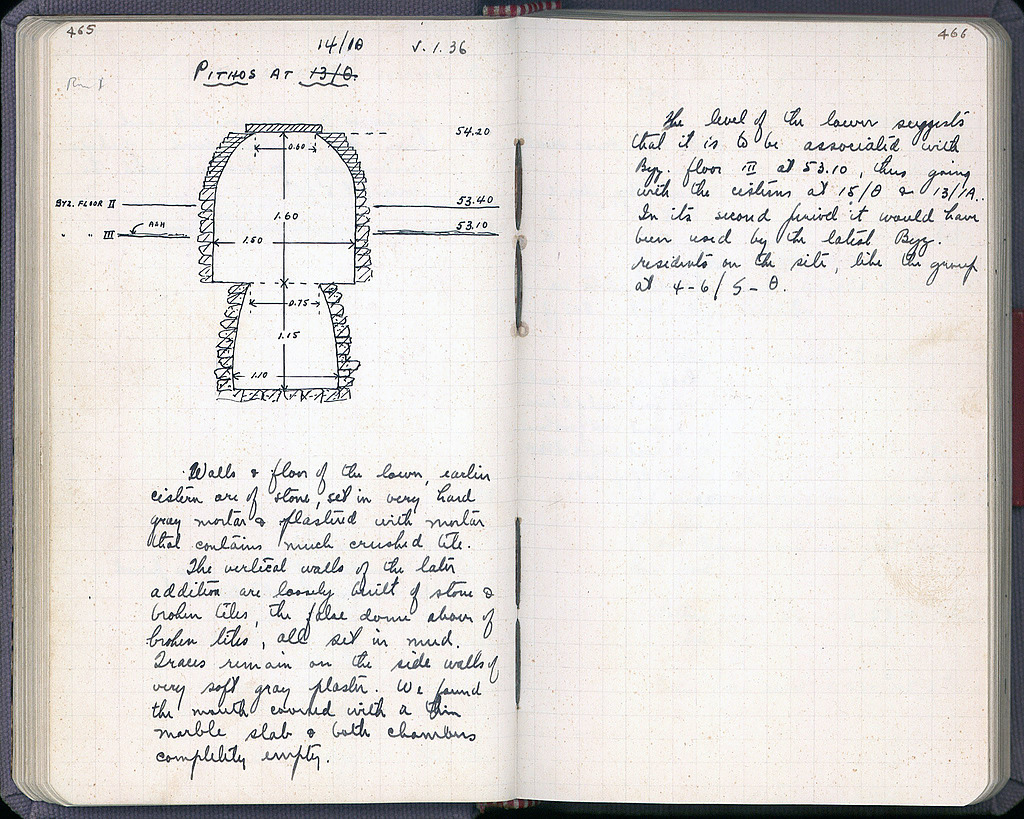 465
14/Θ V.1.36
PITHOS AT 13/Θ.
54.20
0.60
BYZ. FLOOR II
53.40
1.60
" " III ASH
53.10
1.50
0.75
1.15
1.10
Walls & floor of the lower, earlier
cistern are of stone, set in very hard
gray mortar & plastered with mortar
that contains much crushed tile.
The vertical walls of the later
addition are loosely built of stone &
broken tiles, the false dome above of
broken tiles, all set in mud.
Traces remain on the side walls of
very soft gray plaster. We found
the mouth covered with a thin
marble slab & both chambers
completely empty.
466
The level of the lower suggests
that it is to be associated with
Byz. floor III at 53.10, thus going
with the cisterns at 15/Θ & 13/ΙΑ.
In its second period it would have
been used by the latest Byz.
residents on the site, like the group
at 4-6/5-Θ.